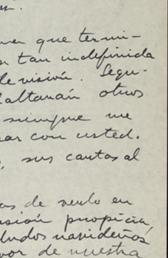 ver que termi-
n tan indefinida
levisión. Segu-
altarán otros
siempre me
ar con usted.
, sus cartas al
es de verlo en
isión propicia
ludos navideños
or de nuestra